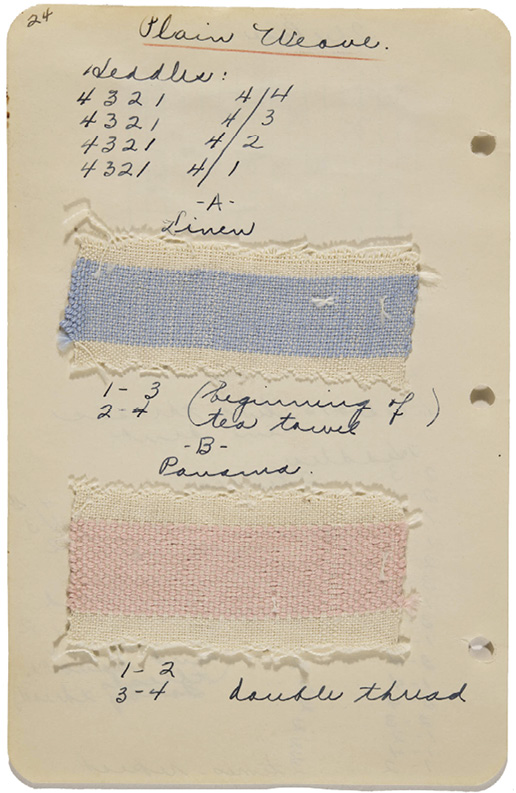 24
Plain Weave.
Heddles:
4 3 2 1 4/4
4 3 2 1 4/3
4 3 2 1 4/2
4 3 2 1 4/1
-A-
Linen
1- 3 (beginning of
2-4 tea towel)
-B-
Panama.
1- 2
3-4 double thread